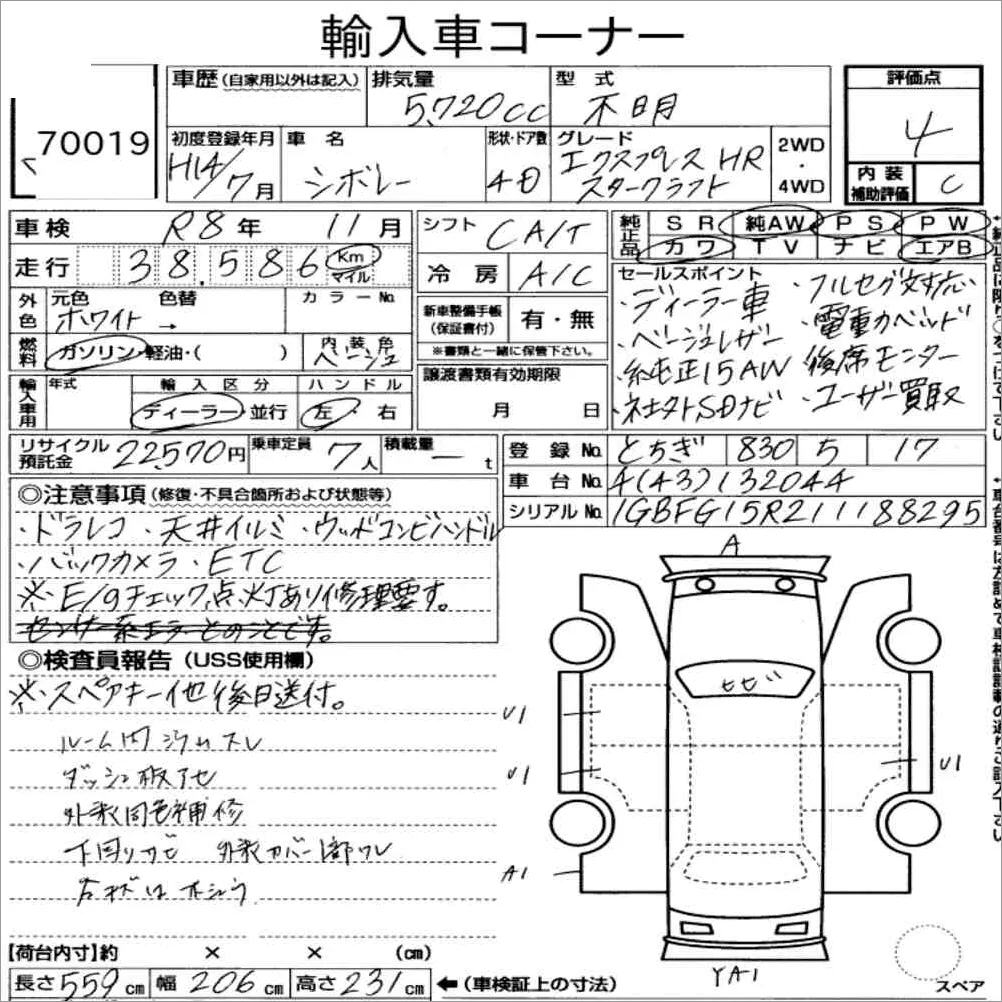 輸入車コーナー
70019
車歴 (自家用以外は記入)
排気量 5,720cc
型式 不明
評価点 4
初度登録年月 H14/7月
車名 シボレー
形状・ドア数 4D
グレード エクスプレス HR
スタークラフト
2WD・4WD
内装補助評価 C
車検 R8年 11月
走行 38,586 Km マイル
シフト CA/T
冷房 A/C
純正品 SR 純AW PS PW
カワ TV ナビ エアB
外色 元色 ホワイト 色替 → カラーNo.
燃料 ガソリン・軽油・( )
内装色 ベージュ
新車整備手帳(保証書付) 有・無
※書類と一緒に保管下さい。
輸入車用 年式
輸入区分 ディーラー・並行
ハンドル 左・右
譲渡書類有効期限
月 日
セールスポイント
・ディーラー車 ・フルセグ対応
・ベージュレザー ・電動カベッド
・純正15AW 後席モニター
・社外SDナビ ・ユーザー買取
リサイクル預託金 22,570円
乗車定員 7人
積載量 ー t
登録No. とちぎ 830 5 17
車台No. 4(43)132044
シリアルNo. 1GBFG15R211188295
◎注意事項 (修復・不具合箇所および状態等)
・ドラレコ ・天井イルミ ・ウッドコンビハンドル
・バックカメラ ・ETC
※E/gチェック点灯あり修理要す。
センサー系エラーとのことです。
◎検査員報告 (USS使用欄)
※スペアキー他後日送付。
ルーム内 スレ
ダッシュ板
外装同色補修
下回りサビ 外装カバー部ワレ
A
ヒビ
U1
U1
U1
A1
YA1
スペア
【荷台内寸】約 × × (cm)
長さ 559cm 幅 206cm 高さ 231cm ←(車検証上の寸法)